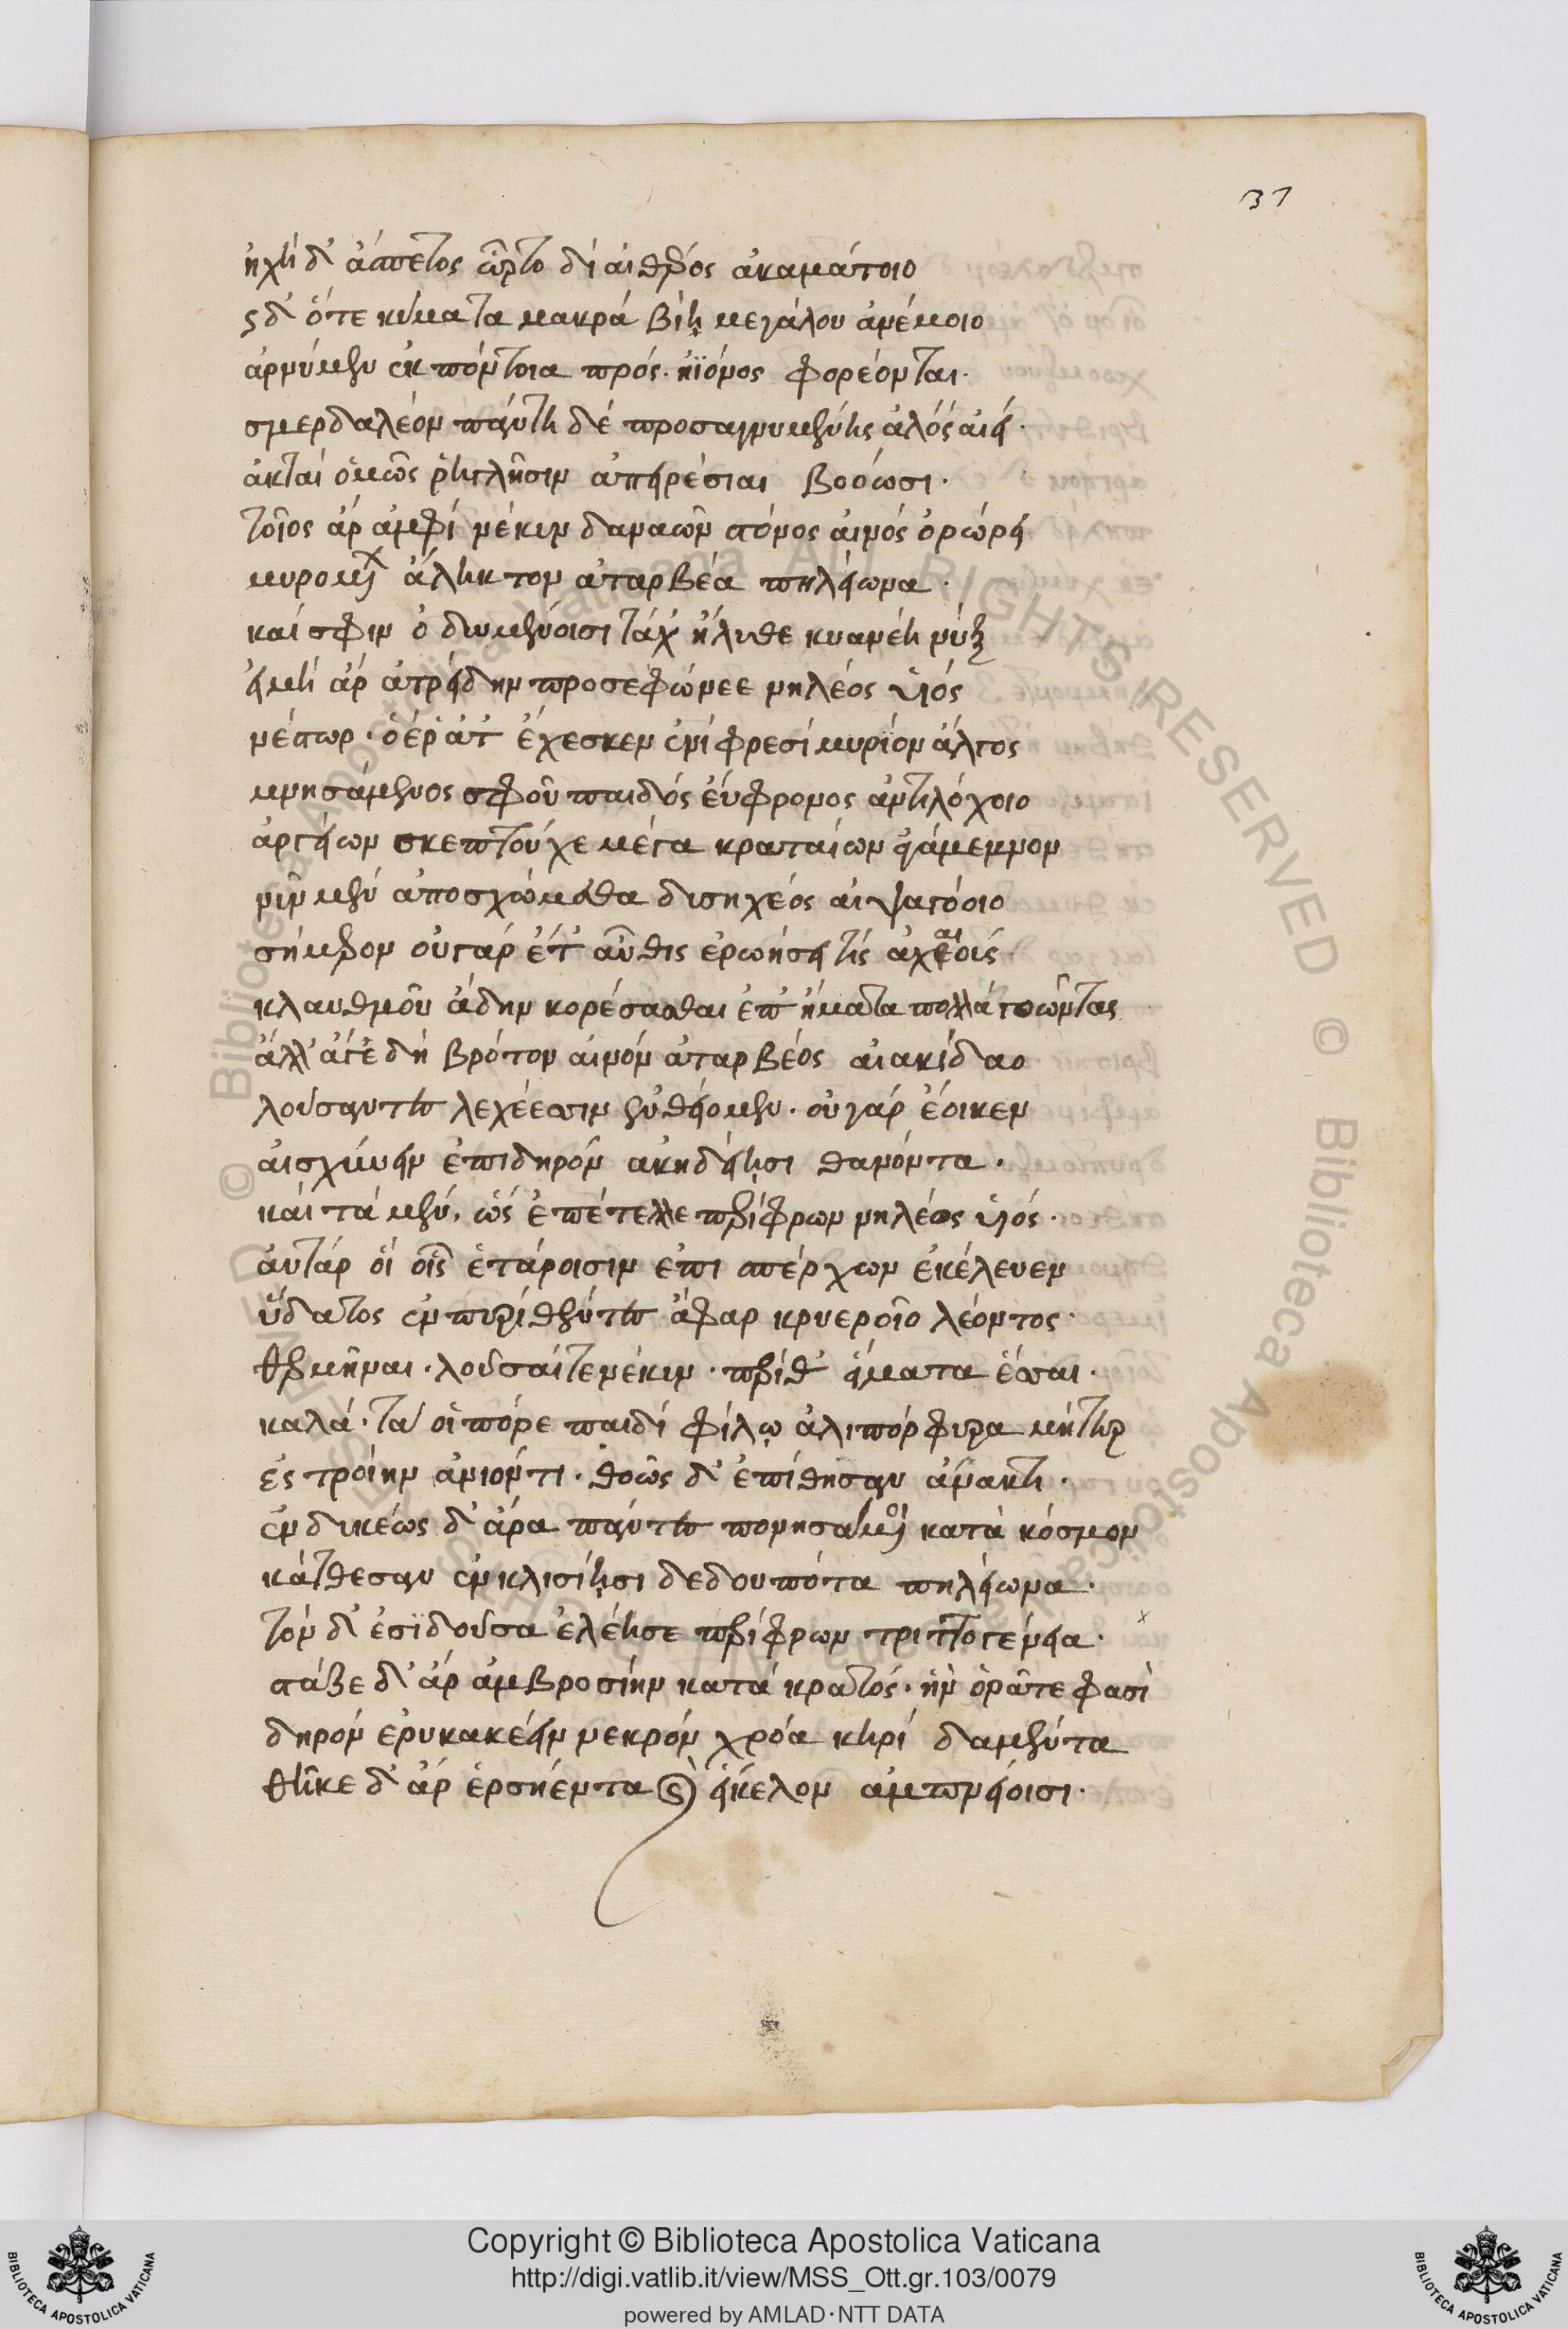 31
ἠχὴ δ' ἄσπετος ὦρτο δι' αἰθέρος ἀκαμάτοιο
ς δ' ὅτε κύματα μακρὰ βίῃ μεγάλου ἀνέμοιο
ὀρνύμεν ἐκ πόντοιο πρὸς ἠϊόνος φορέονται·
σμερδαλέον πάντη δὲ προσαγνυμένης ἁλὸς αἰεί·
ἀκταὶ ὁμῶς ῥηγμῖσιν ἀπειρέσιαι βοόωσι·
τοῖος ἄρ ἀμφὶ νέκυν δαναῶν στόνος αἰνὸς ὀρώρει
μυρομένων ἄληκτον ἀταρβέα πηλείωνα·
καί σφιν ὀδυρομένοισι τάχ' ἤλυθε κυανέη νύξ
εἰ μὴ ἄρ ἀτρείδην προσεφώνεε νηλέος υἱός
νέστωρ· ὅς ῥ' ἅτ' ἔχεσκεν ἐνὶ φρεσὶ μυρίον ἄλγος
μνησάμενος σφοῦ παιδὸς ἐύφρονος ἀντιλόχοιο
ἀργείων σκηπτοῦχε μέγα κραταίων ἀγάμεμνον
νῦν μὲν ἀποσχώμεθα δυσηχέος αἰψα γόοιο
σήμερον οὐ γὰρ ἔτ' αὖθις ἐρωήσει τίς ἀχαιοίς
κλαυθμοῦ ἄδην κορέσασθαι ἐπ' ἤματα πολλὰ γοῶντας
ἀλλ' ἄγε δὴ βρότον αἰνὸν ἀταρβέος αἰακίδαο
λούσαντες λεχέεσσιν ἐνθείομεν· οὐ γὰρ ἔοικεν
αἰσχύνειν ἐπὶ δηρὸν ἀκηδείῃσι θανόντα·
καὶ τὰ μὲν, ὣς ἐπέτελλε περίφρων νηλέος υἱός·
αὐτὰρ ὅ οἷς ἑτάροισιν ἐπισπέρχων ἐκέλευεν
ὕδατος ἐν πυρὶ θέντες ἄφαρ κρυεροῖο λέοντος·
θερμῆναι· λοῦσαί τε νέκυν· περὶ θ' εἵματα ἕσσαι·
καλὰ· τά οἱ πόρε παιδὶ φίλῳ ἁλιπόρφυρα μήτηρ
ἐς τροίην ἀνιόντι· θοῶς δ' ἐπίθησαν ἄνακτι·
ἐνδυκέως δ' ἄρα πάντες πονησάμενοι κατὰ κόσμον
κάτθεσαν ἐν κλισίῃσι δεδουπότα πηλείωνα·
τὸν δ' ἐσϊδοῦσα ἐλέησε περίφρων τριττογένεια·
στάξε δ' ἄρ ἀμβροσίην κατὰ κρατός· ἣν ὁρᾶτε φασὶ
δηρὸν ἐρυκακέειν νεκρὸν χρόα κηρὶ δαμέντα
θῆκε δ' ἄρ ἑρσήεντα καὶ εἴκελον ἀμπνείοισι·
Copyright © Biblioteca Apostolica Vaticana
http://digi.vatlib.it/view/MSS_Ott.gr.103/0079
powered by AMLAD · NTT DATA